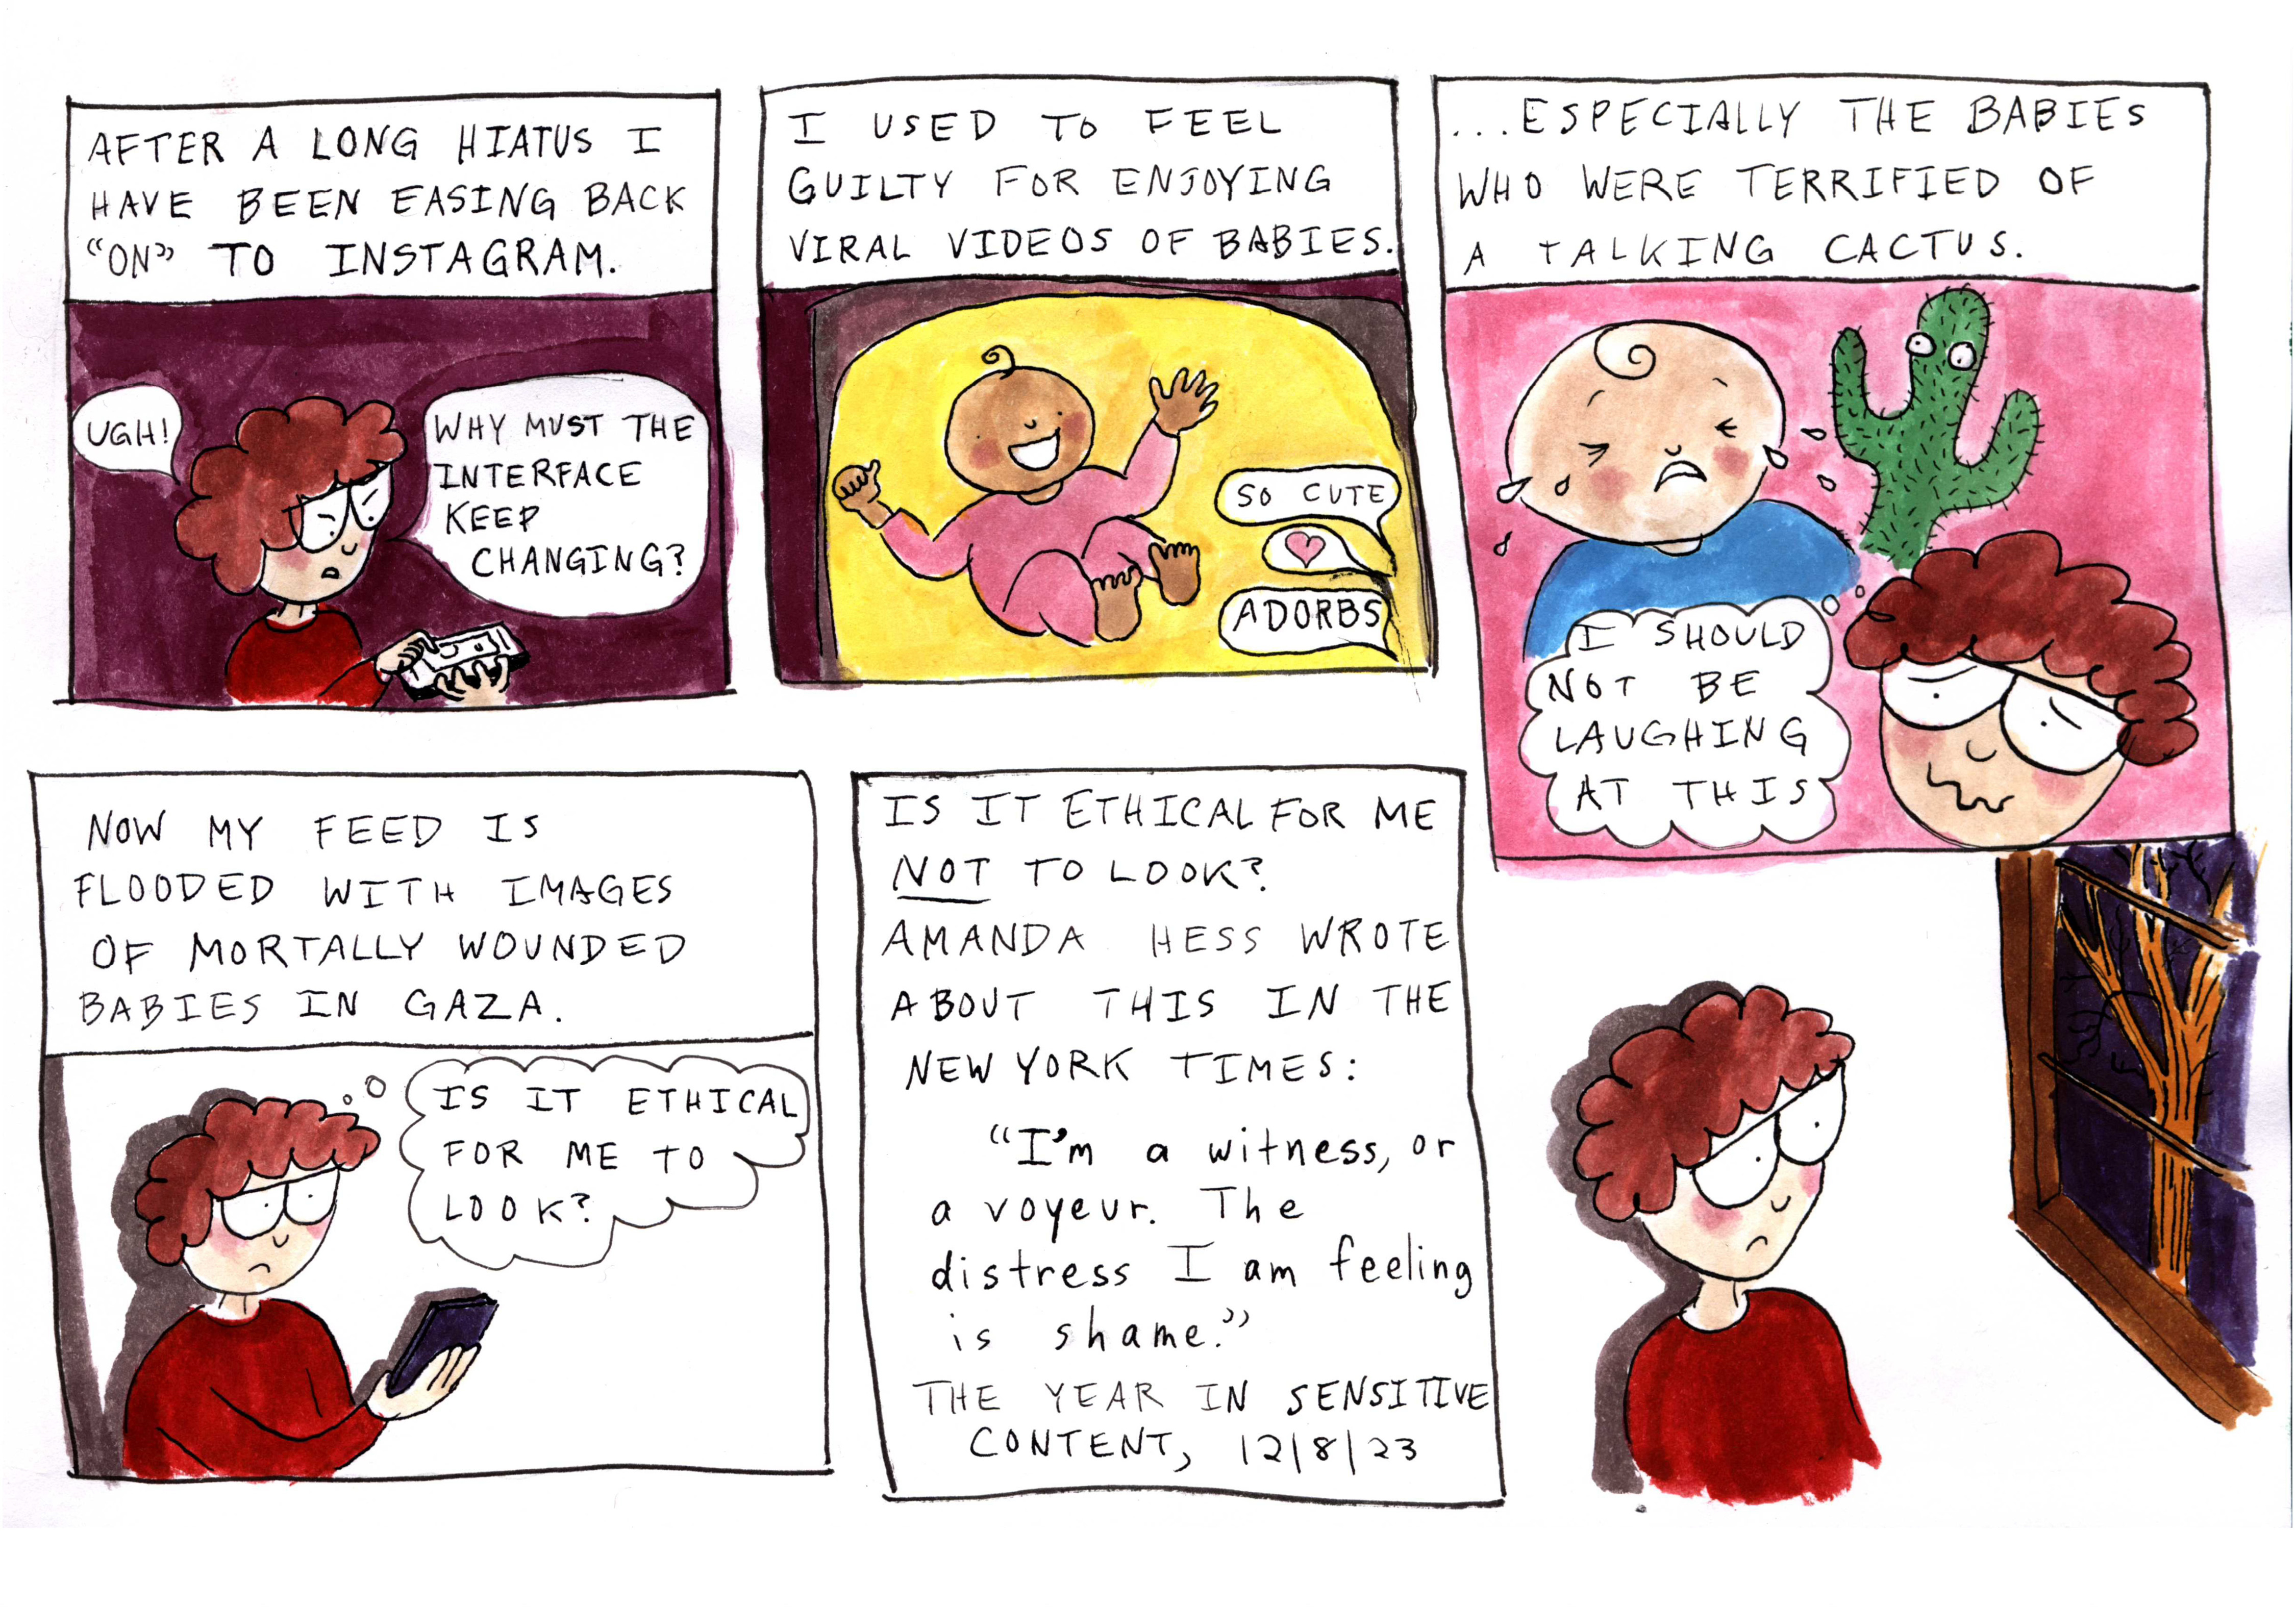 AFTER A LONG HIATUS I
HAVE BEEN EASING BACK
"ON" TO INSTAGRAM.
UGH!
WHY MUST THE
INTERFACE
KEEP
CHANGING?
I USED TO FEEL
GUILTY FOR ENJOYING
VIRAL VIDEOS OF BABIES.
SO CUTE
ADORBS
...ESPECIALLY THE BABIES
WHO WERE TERRIFIED OF
A TALKING CACTUS.
I SHOULD
NOT BE
LAUGHING
AT THIS
NOW MY FEED IS
FLOODED WITH IMAGES
OF MORTALLY WOUNDED
BABIES IN GAZA.
IS IT ETHICAL
FOR ME TO
LOOK?
IS IT ETHICAL FOR ME
NOT TO LOOK?
AMANDA HESS WROTE
ABOUT THIS IN THE
NEW YORK TIMES:
"I'm a witness, or
a voyeur. The
distress I am feeling
is shame."
THE YEAR IN SENSITIVE
CONTENT, 12/8/23